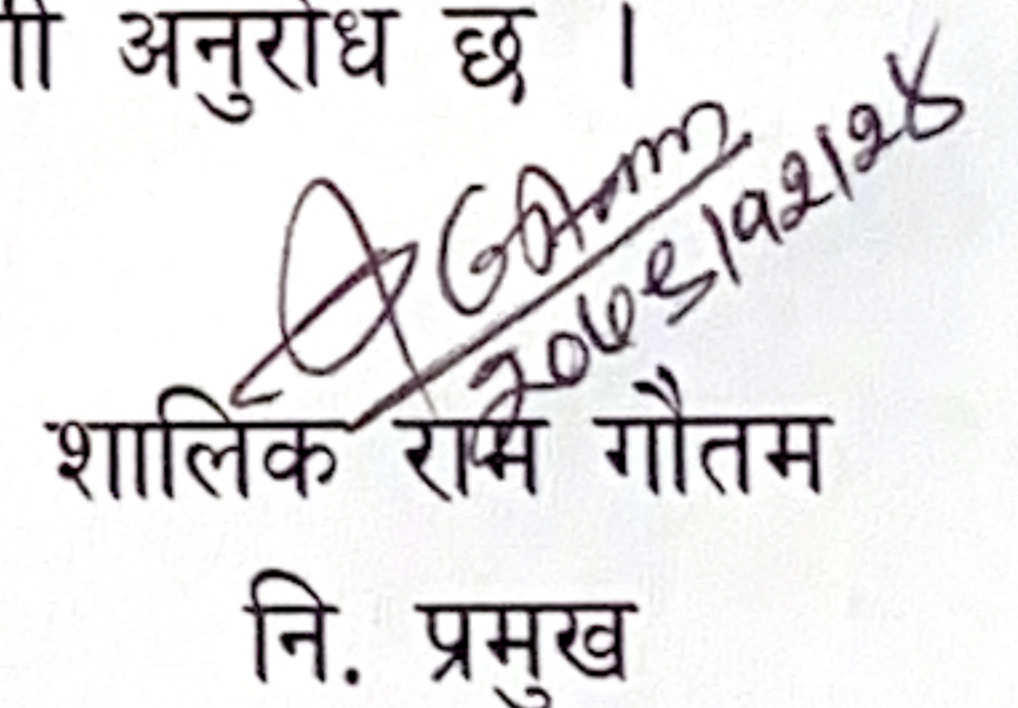 अनुरोध छ ।
२०७९।१२।२४
शालिक राम गौतम
नि. प्रमुख